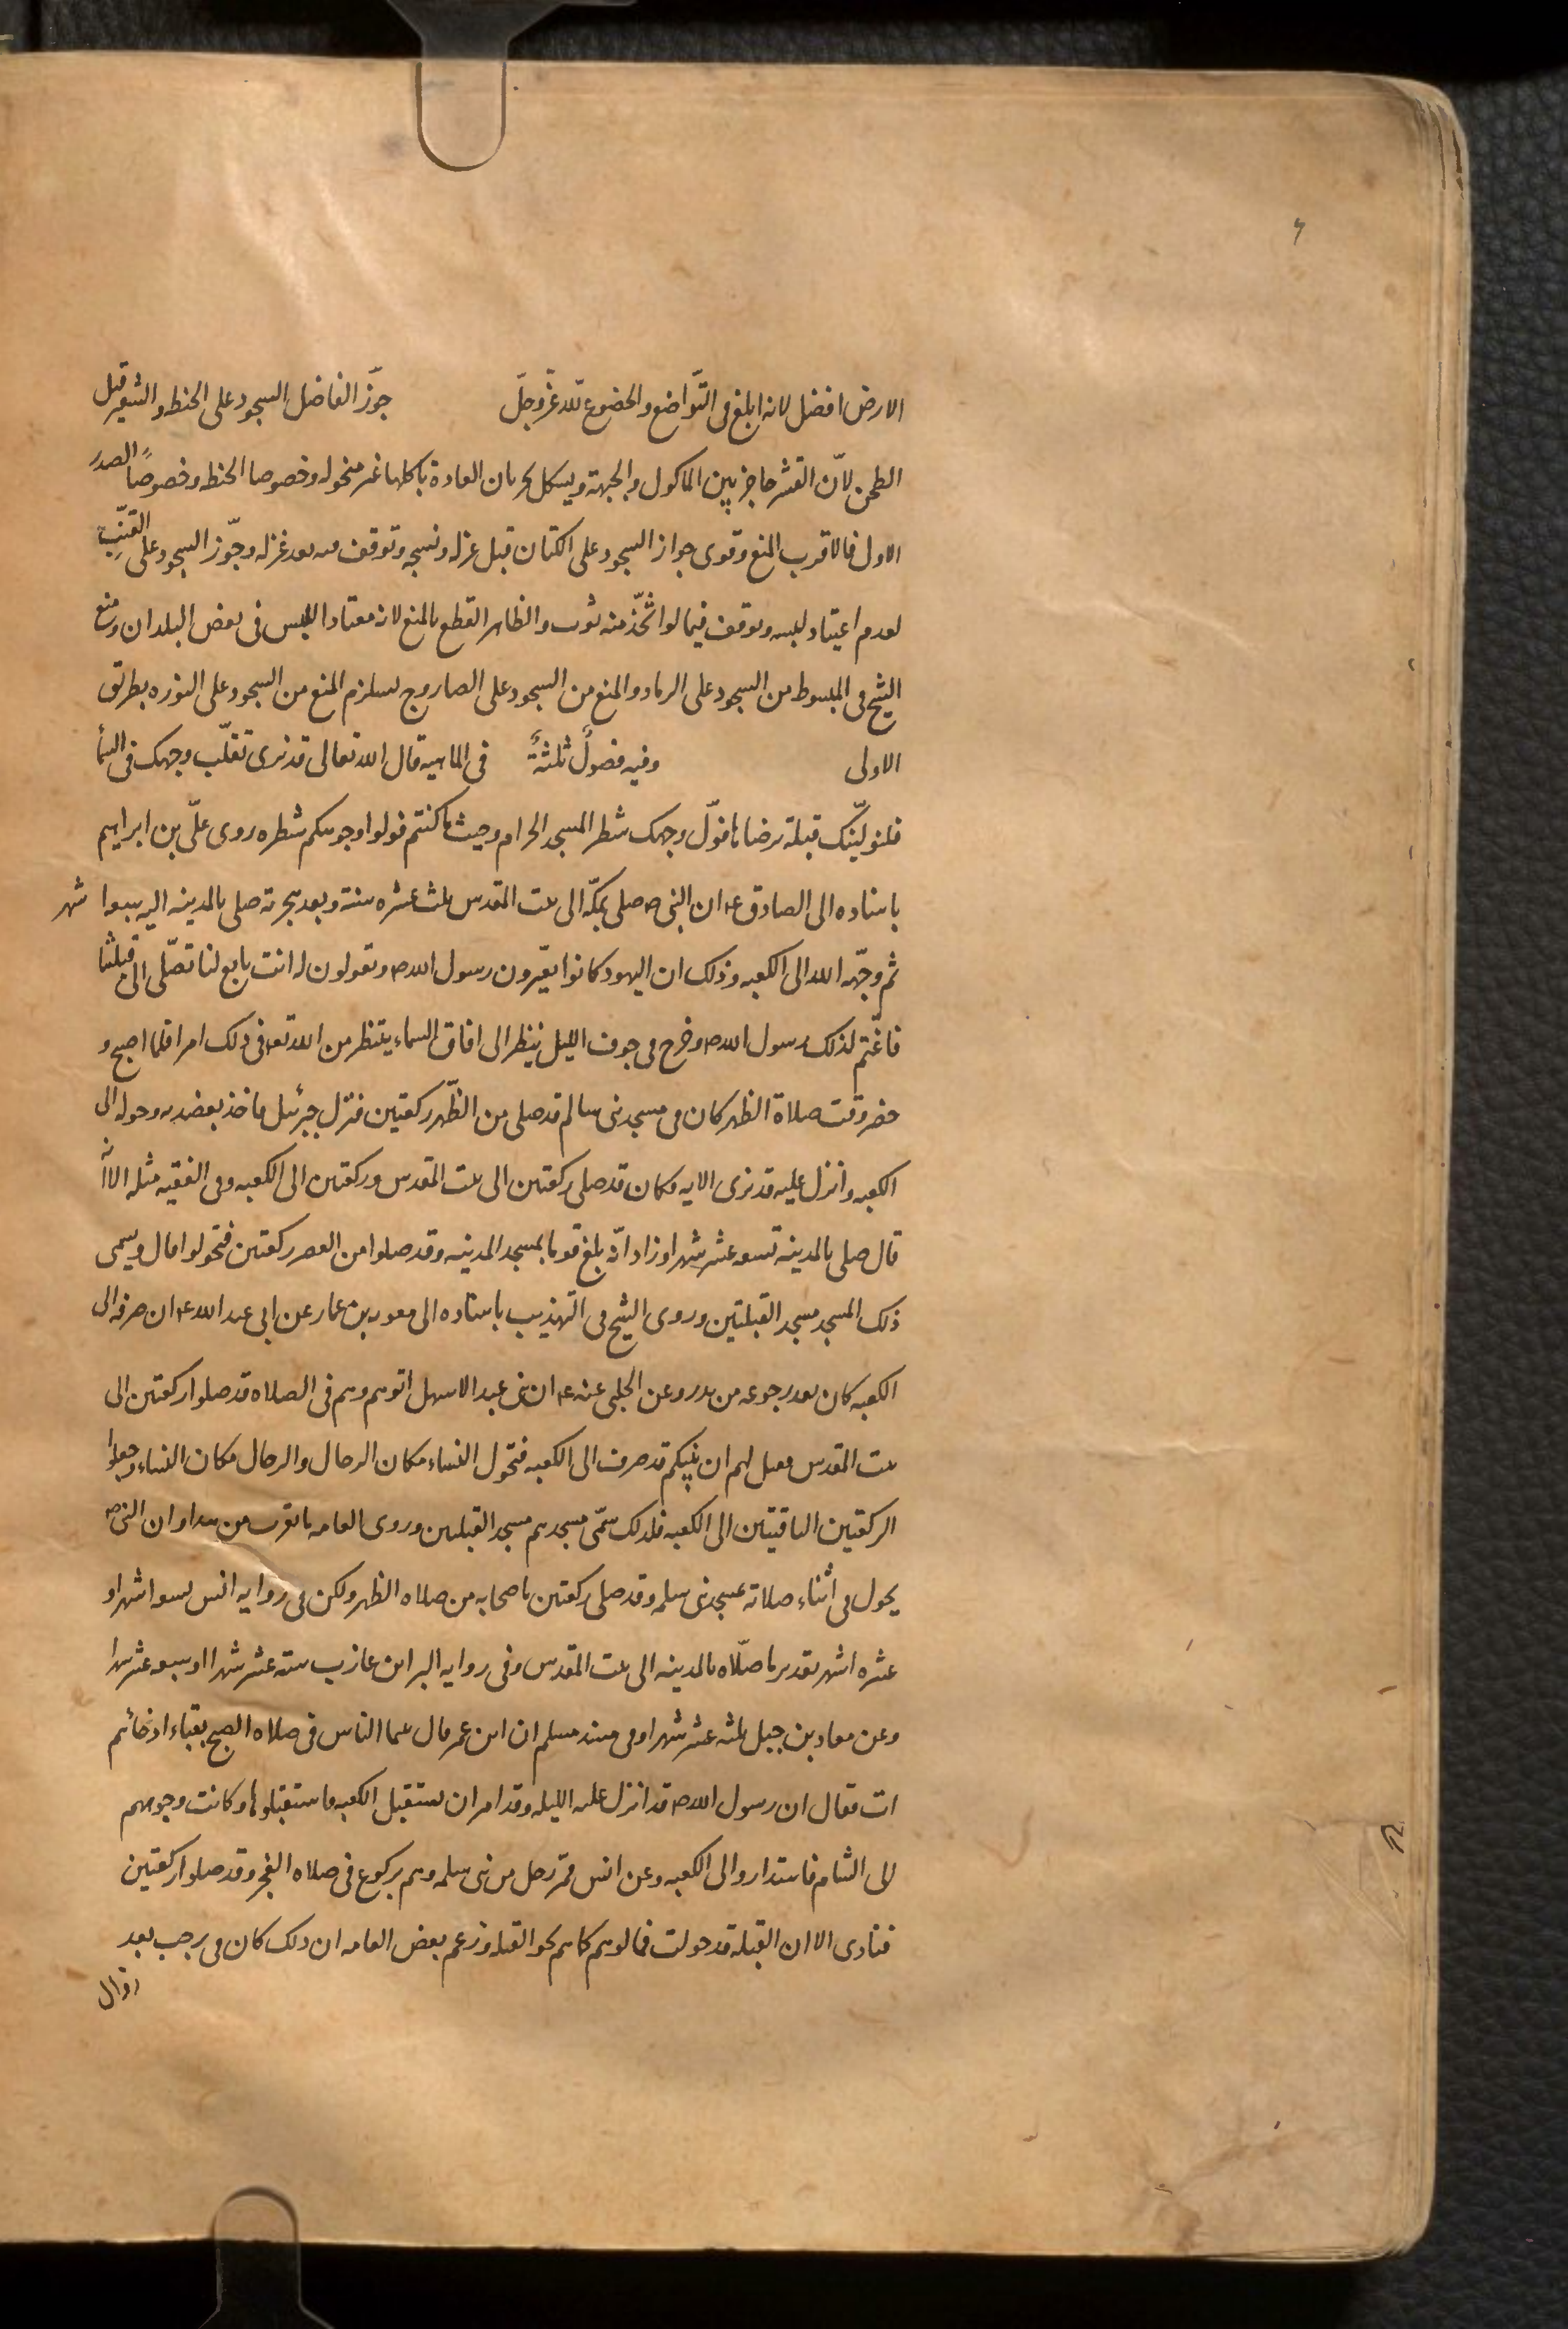 الارض افضل لانه ابلغ فى التّواضع والخضوع للّه عزّوجلّ جوّز الفاضل السجود على الحنطه والشعير قبل
الطحن لانّ القشر حاجز بين الماكول والجبهة ويشكل بجريان العادة باكلها غير منخوله وخصوصا الحنطه وخصوصًا الصدر
الاول فالاقرب المنع وقوى جواز السجود على الكتان قبل غزله ونسجه وتوقف فيه بعد غزله وجّوز السجود على القنّب
لعدم اعتياد لبسه وتوقف فيما لو اتّخّذ منه ثوب والظاهر القطع بالمنع لانه معتاد اللبس فى بعض البلدان ومنع
الشيخ فى المبسوط من السجود على الرماد والمنع من السجود على الصاروج يستلزم المنع من السجود على النوره بطريق
الاولى وفيه فصولٌ ثلثةٌ فى الماهيه قال الله تعالى قد نرى تقلّب وجهك فى السمأ
فلنولّينّك قبلة ترضاها فولّ وجهك شطر المسجد الحرام وحيث ما كنتم فولوا وجوهكم شطره روى علّى بن ابراهيم
باسناده الى الصادق ع ان النبى ص صلى بمكّة الى بيت المقدس ثلث عشره سنة وبعد هجرته صلى بالمدينه اليه سبعة شهر
ثم وجّهه الله الى الكعبه وذلك ان اليهود كانوا يعيّرون رسول الله ص ويقولون له انت تابع لنا تصّلى الى قبلتنا
فاغّتم لذلك رسول الله ص وخرج فى جوف الليل ينظر الى افاق السماء ينتظر من الله تعه فى ذلك امرا فلما اصبح و
حضر وقت صلاة الظهر كان فى مسجد بنى سالم قد صلى من الظّهر ركعتين فنزل جبرئيل فاخذ بعضديه وحوله الى
الكعبه وانزل عليه قد نرى الايه وكان قد صلى ركعتين الى بيت المقدس وركعتين الى الكعبه وفى الفقيه مثله الا انّه
قال صلى بالمدينه تسعه عشر شهرا وزاد انّه بلغ قوما بمسجد المدينه وقد صلوا من العصر ركعتين فتحولوا قال ويسمى
ذلك المسجد مسجد القبلتين وروى الشيخ فى التهذيب باسناده الى معويه بن عمار عن ابى عبد الله ع ان صرفه الى
الكعبه كان بعد رجوعه من بدر وعن الحلبى عنه ع ان بنى عبد الاسهل اتوهم وهم فى الصلاه قد صلوا ركعتين الى
بيت المقدس فقيل لهم ان نبيكم قد صرف الى الكعبه فتحول النساء مكان الرجال والرجال مكان النساء وجعلوا
الركعتين الباقيتين الى الكعبه فلذلك سمّى مسجدهم مسجد القبلتين وروى العامه ما يقرب من هذا وان النبى ص
يحول فى اثناء صلاته بمسجد بنى سلمه وقد صلى ركعتين باصحابه من صلاه الظهر ولكن فى روايه انس تسعه اشهر او
عشره اشهر تقدير ما صلّاه بالمدينه الى بيت المقدس وفى روايه البرا بن عازب سته عشر شهرا او سبعه عشر شهرا
وعن معاد بن جبل ثلثه عشر شهرا وفى مسند مسلم ان ابن عمر قال بينما الناس فى صلاه الصبح بقباء اذ جائهم
ات فقال ان رسول الله ص قد انزل عليه الليله وقد امر ان يستقبل الكعبه فاستقبلوها وكانت وجوههم
الى الشام فاستداروا الى الكعبه وعن انس فمّر رجل من بنى سلمه وهم ركوع فى صلاه الفجر وقد صلوا ركعتين
فنادى الا ان القبله قد حولت فمالوا هم كماهم نحو القبله وزعم بعض العامه ان ذلك كان فى رجب بعد
زوال